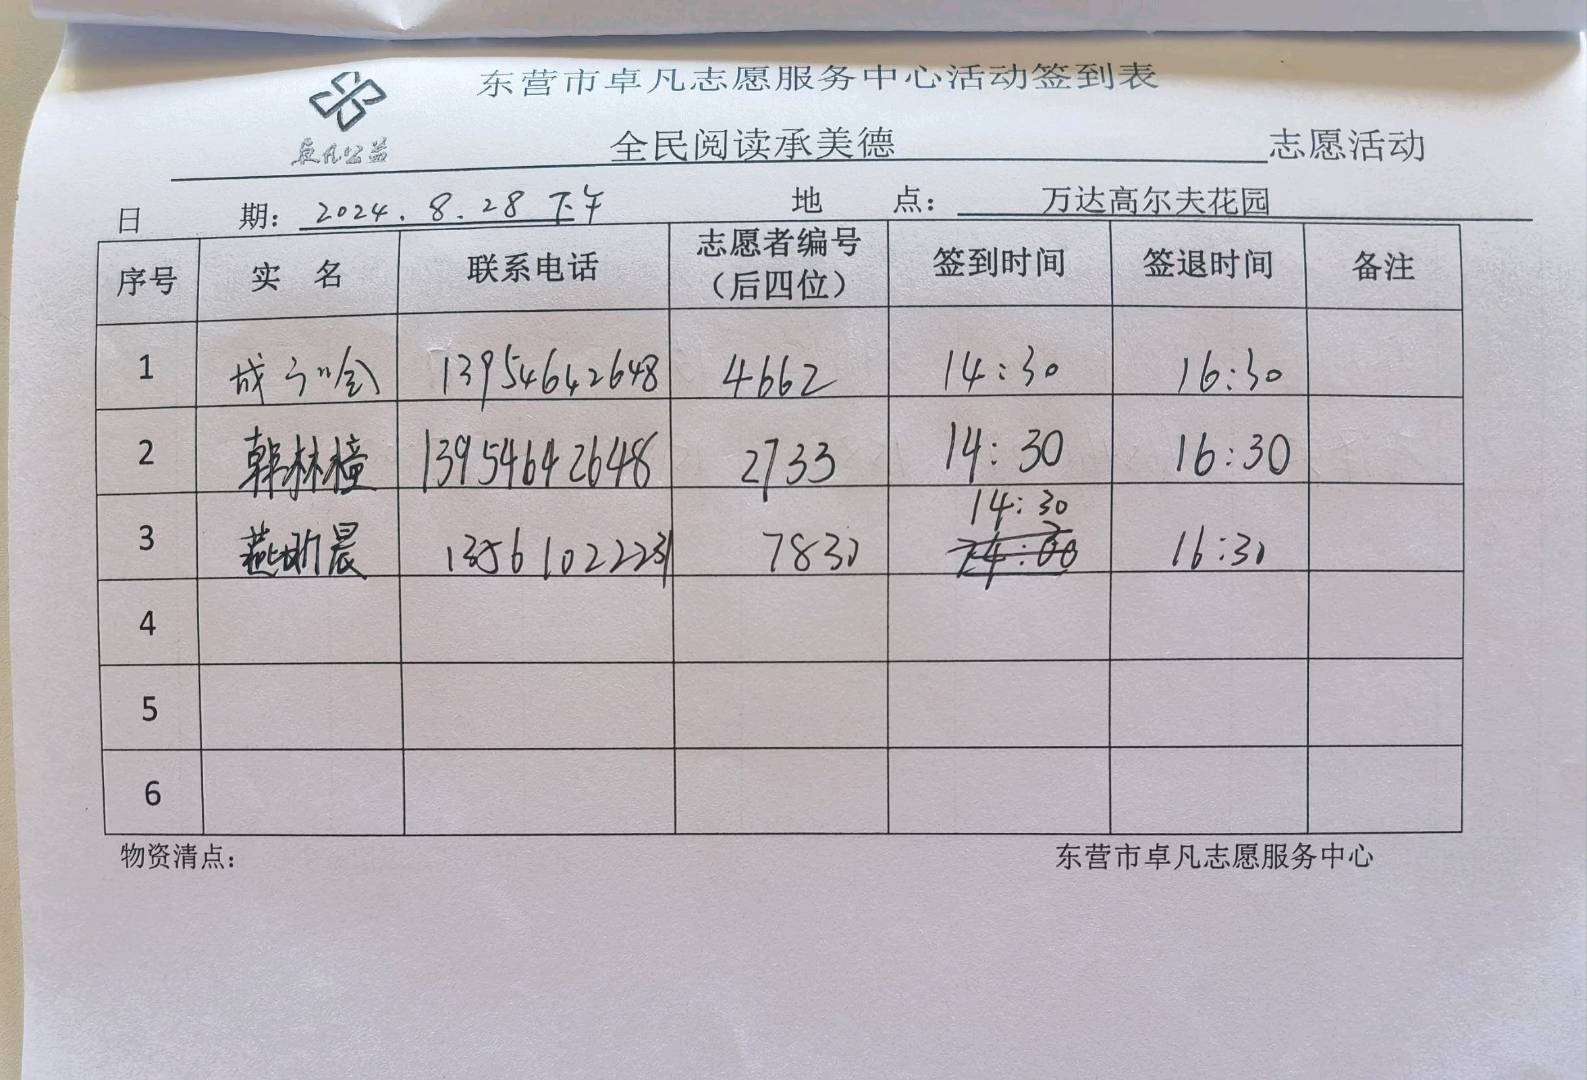 东营市卓凡志愿服务中心活动签到表
卓凡公益
全民阅读承美德 志愿活动
日 期： 2024.8.28 下午 地 点： 万达高尔夫花园
序号 实 名 联系电话 志愿者编号（后四位） 签到时间 签退时间 备注
1 13954642648 4662 14:30 16:30
2 韩林橦 13954642648 2733 14:30 16:30
14:30
3 燕昕晨 13561022231 7830 16:30
4
5
6
物资清点： 东营市卓凡志愿服务中心